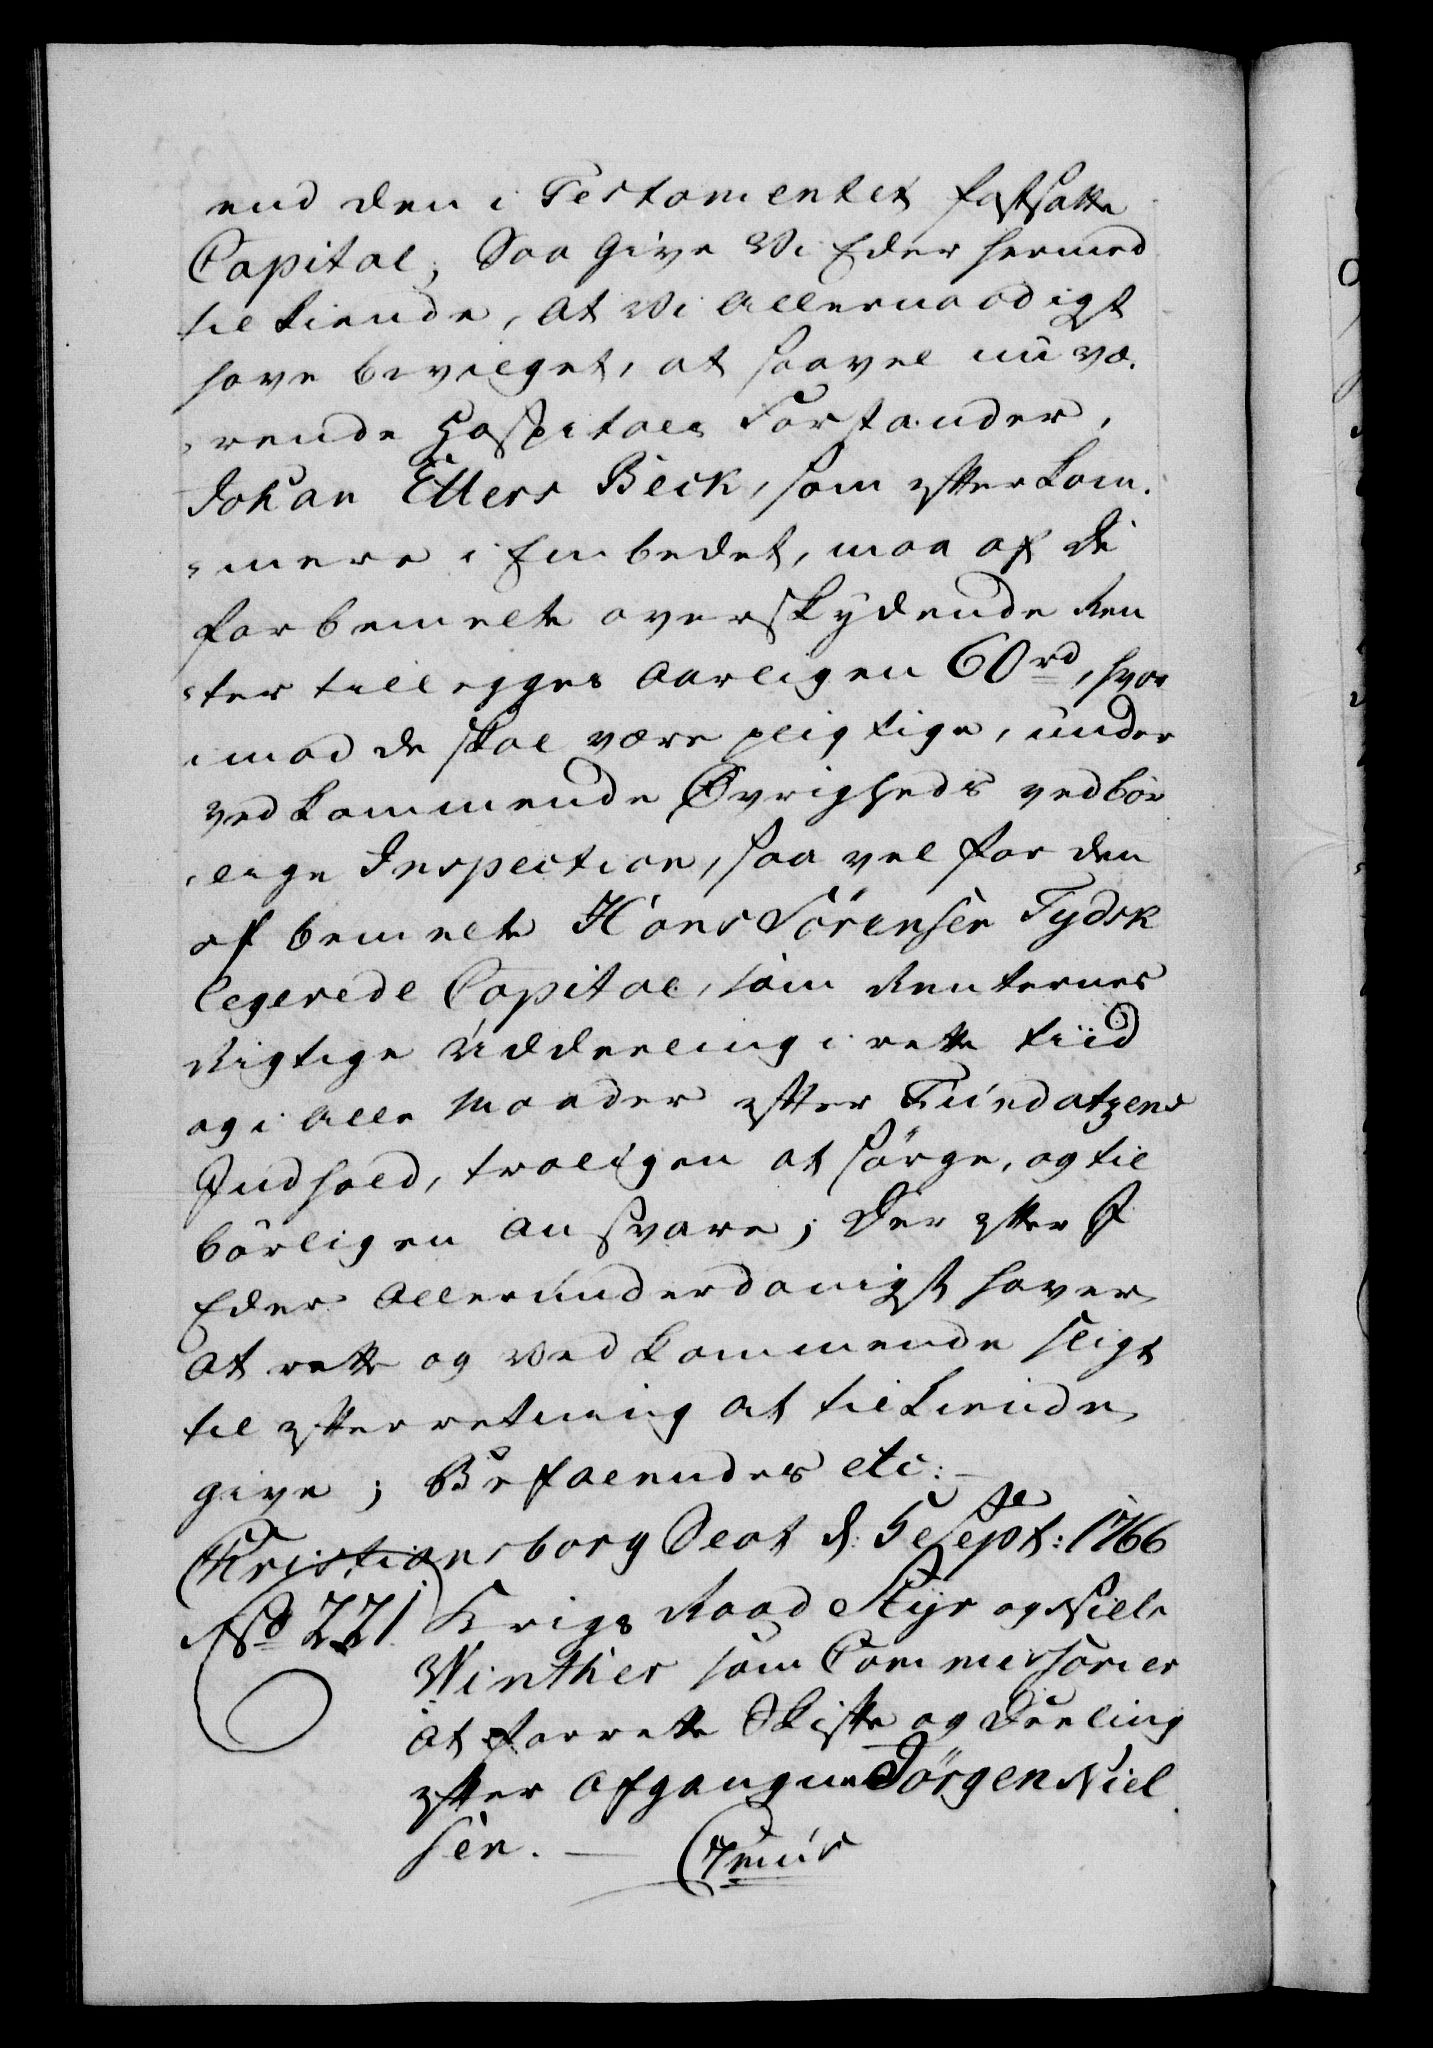 end den i Testamentet fastsatte
Capital; Saa give Vi Eder hermed
tilkiende, at Vi allernaadigst
have bevilget, at saavel nu væ-
rende Hospitals Forstander,
Johan Ellers Beck, som efterkom-
mere i Embedet, maa af de
forbemelte overskydende Ren
ter tillegges aarligen 60 rd, hvor
imod de skal være pligtige, under
vedkommende Øvrigheds vedbör
lige Inspection, saavel for den
af bemelte Hans Sörensen Tydsk
legerede Capital, som Renternes
Rigtige Uddeeling i rette tiid
og i alle Maader efter Fundatzens
Indhold, troeligen at sörge, og til
börligen ansvare; Der efter I
Eder allerunderdanigst haver
at rette og vedkommende sligt
til efterretning at tilkiende
give; Befalendes etc:
Christiansborg Slot d: 5te Sept: 1766
No 221. Krigs Raad Styr og Niels
Winther som Commissarier
at forrette Skifte og Deeling
efter afgangne Jörgen Niel
sen.